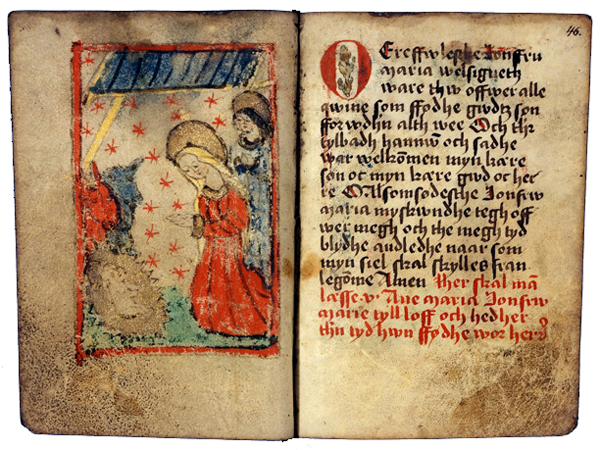 46.
O Ereffwlesthe Jonffru
maria welsigneth
ware thw offwer alle
qwine som ffødhe gwdtz son
for wdhn alth wee Och thr
tylbadh hannw och sadhe
war welkommen myn kære
son oc myn kære gwd oc her
re Allsomsodesthe Jonfrw
maria myskwndhe tegh off
wer megh och the megh tyd
blydhe andledhe naar som
myn siel skal skylles fran
legome Amen Ther skal man
læsse .v. Aue maria Jonfrw
marie tyll loff och hedher
thn tyd hwn ffødhe wor herr